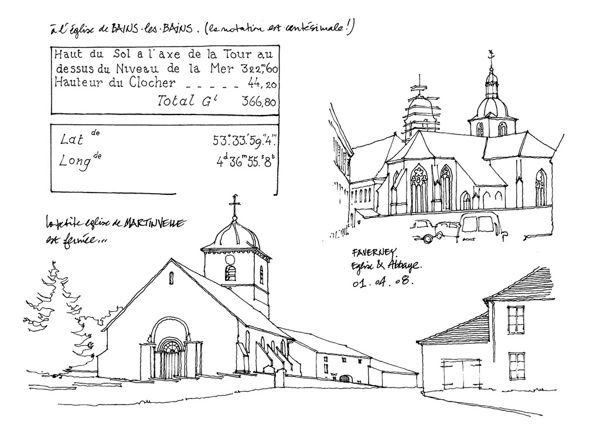 à l'église de BAINS-les-BAINS. (la notation est centésimale!)
Haut du Sol a l'axe de la Tour au
dessus du Niveau de la Mer 322,m60
Hauteur du Clocher _ _ _ _ _ 44,20
Total Gt 366,80
Lat de 53°.33'.59."4'''.
Long de 4d 36m 55.s 8t
La petite église de MARTINVELLE
est fermée...
FAVERNEY.
Eglise & Abbaye.
01.04.08.